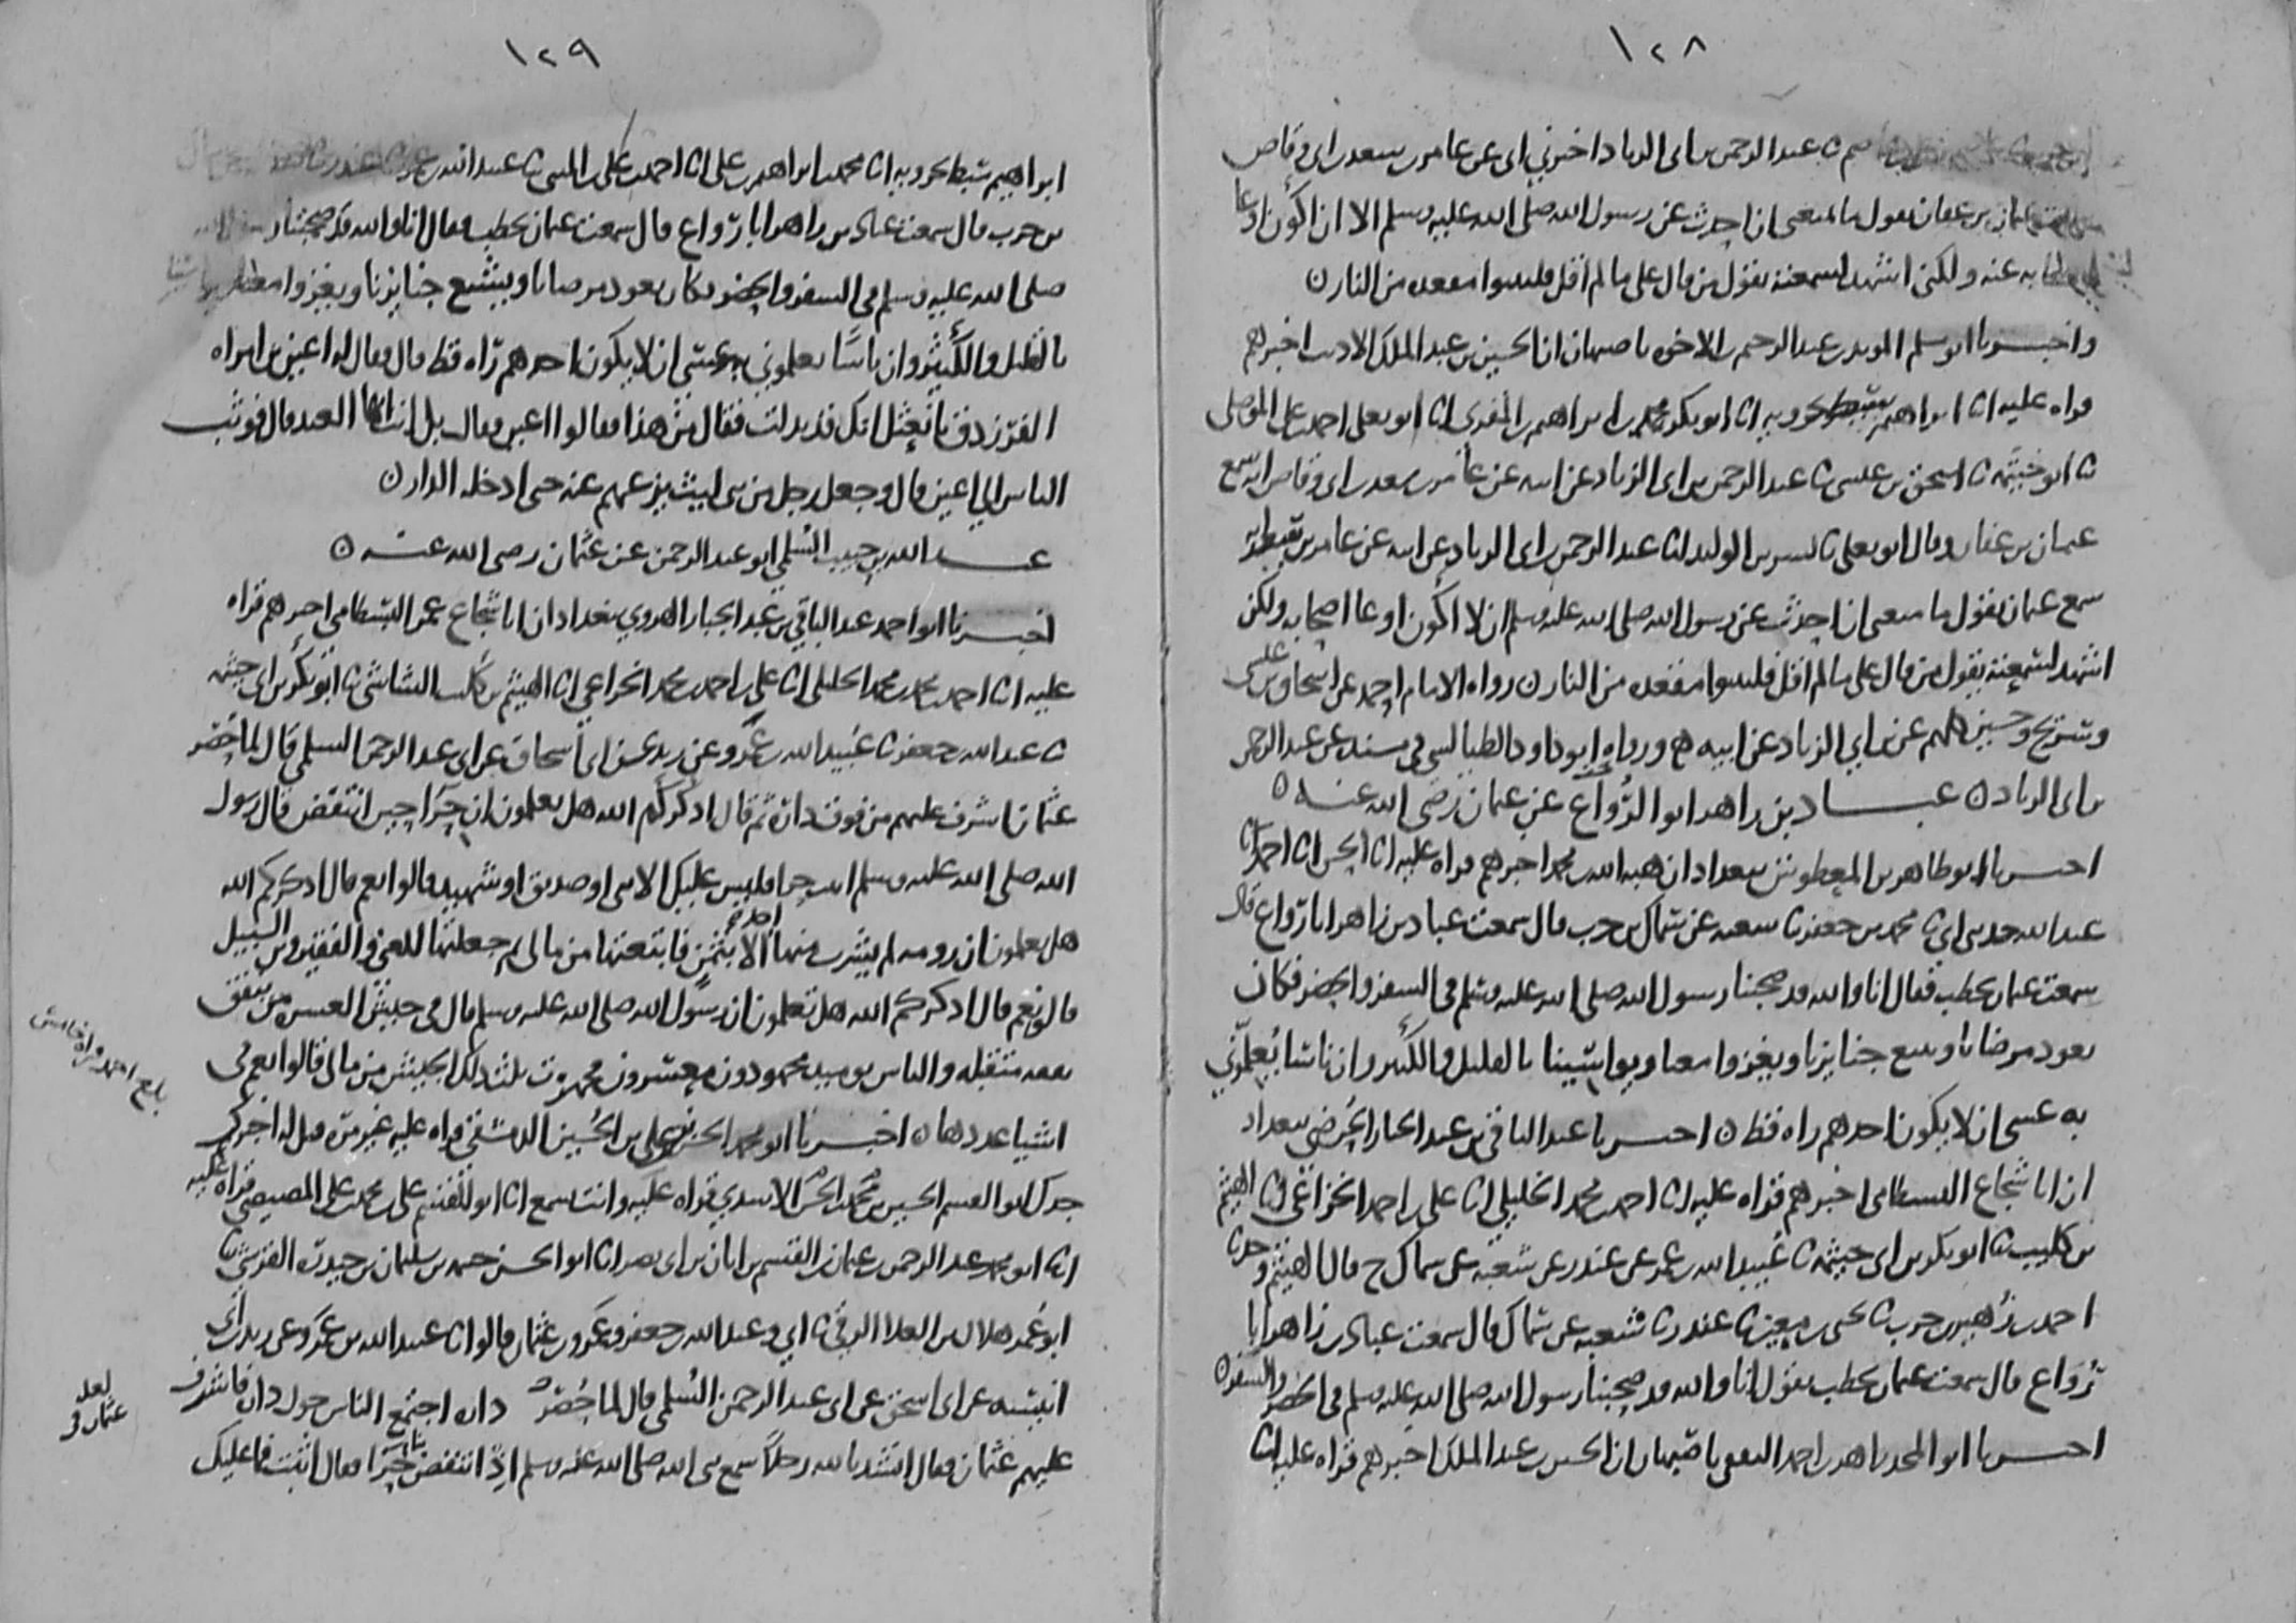 ١٢٨
عبد الرحمن بن ابى الزناد اخبرني ابى عن عامر بن سعد بن ابى وقاص
عثمان بن عفان يقول ما يمنعني ان احدث عن رسول الله صلى الله عليه وسلم الا ان اكون اوعا
اصحابه عنه ولكني اشهد لسمعته يقول من قال على ما لم اقل فليتبوا مقعده من النار ه
واخبرنا ابو مسلم المويد بن عبد الرحيم بن الاخوه باصبهان ان الحسين بن عبد الملك الاديب اخبرهم
قراه عليه انا ابراهيم سبط بحرويه انا ابو بكر محمد بن ابراهيم بن المقرى انا ابو يعلى احمد بن على الموصلى
نا ابو خيثمه نا اسحق بن عيسى نا عبد الرحمن بن ابى الزناد عن ابيه عن عامر بن سعد بن ابى وقاص انه سمع
عثمان بن عفان وقال ابو يعلى نا بشر بن الوليد نا عبد الرحمن بن ابى الزناد عن ابيه عن عامر بن
سمع عثمان يقول ما يمنعى ان احدث عن رسول الله صلى الله عليه وسلم ان لا اكون اوعا اصحابه ولكن
اشهد لسمعته يقول من قال على ما لم اقل فليتبوا مقعده من النار ه رواه الامام احمد عن اسحاق بن عيسى
وسريج وحسين كلهم عن بن ابي الزناد عن ابيه ورواه ابو داود الطيالسى فى مسنده عن عبد الرحمن
بن ابى الزناد ه عبــاد بن زاهد ابو الرواع عن عثمان رضى الله عنه ه
اخبرنا ابو طاهر بن المعطوش ببغداد ان هبه الله بن محمد اخبرهم قراه عليه انا الحسن انا احمد نا
عبد الله حدثنى ابى نا محمد بن جعفر نا شعبه عن سماك بن حرب قال سمعت عباد بن زاهر ابا رواع قال
سمعت عثمان يخطب فقال انا والله قد صحبنا رسول الله صلى الله عليه وسلم فى السفر والحضر فكان
يعود مرضانا ويتبع جنايزنا ويغزوا معنا ويواسينا بالقليل والكثير وان ناسا يعلموني
به عسى ان لا يكون احدهم راه قط ه اخبرنا عبد الباقي بن عبد الجبار الحرضى ببغداد
ان ابا شجاع البسطامى اخبرهم قراه عليه انا احمد بن محمد الخليلي انا على بن احمد الخزاعي انا الهيثم
بن كليب نا ابو بكر بن ابى خيثمه نا عبيد الله بن عمر عن غندر عن شعبه عن سماك ح قال الهيثم وحدثنا
احمد بن زهير بن حرب نا يحيى بن معين نا غندر نا شعبه عن سماك قال سمعت عباد بن زاهر ابا
رواع قال سمعت عثمان يخطب يقول انا والله قد صحبنا رسول الله صلى الله عليه وسلم فى الحضر والسفر ه
اخبرنا ابو المجد زاهر بن احمد الثقفى باصبهان ان الحسين بن عبد الملك اخبرهم قراه عليه انا
١٢٩
ابراهيم سبط بحرويه انا محمد بن ابراهيم بن على انا احمد بن على بن المثنى نا عبيد الله بن عمر نا غندر
بن حرب قال سمعت عباد بن زاهر ابا رواع قال سمعت عثمان يخطب فقال انا والله قد صحبنا رسول الله
صلى الله عليه وسلم فى السفر والحضر وكان يعود مرضانا ويشيع جنايزنا ويغزوا معنا ويواسينا
بالقليل والكثير وان ناسا يعلموني به عسى ان لا يكون احدهم راه قط قال فقال له اعين بن امراه
الفرزدق يا نعثل انك قد بدلت فقال من هذا فقالوا اعين فقال بل انت ايها العبد قال فوثب
الناس الى اعين قال وجعل رجل من بنى ليث يزعهم عنه حتى ادخله الدار ه
عبــد الله بن حبيب السلمي ابو عبد الرحمن عن عثمان رضى الله عنه ه
اخبرنا ابو احمد عبد الباقي بن عبد الجبار الهروي ببغداد ان ابا شجاع عمر البسطامي اخبرهم قراه
عليه انا احمد بن محمد بن محمد الخليلى انا على بن احمد بن محمد الخزاعي انا الهيثم بن كليب الشاشى نا ابو بكر بن ابى خيثمه
نا عبد الله بن جعفر نا عبيد الله بن عمرو عن زيد عن ابى اسحاق عن ابى عبد الرحمن السلمي قال لما حصر
عثمان اشرف عليهم من فوق داره ثم قال اذكركم الله هل تعلمون ان حرا حين انتفض قال رسول
الله صلى الله عليه وسلم اثبت حرا فليس عليك الا نبى او صديق او شهيد قالوا نعم قال اذكركم الله
هل تعلمون ان رومه لم يشرب منها احد الا بثمن فابتعتها من مالى ثم جعلتها للغنى والفقير وبن السبيل
قالوا نعم قال اذكركم الله هل تعلمون ان رسول الله صلى الله عليه وسلم قال فى جيش العسره من ينفق
نفقه متقبله والناس يوميذ مجهودون معسرون فجهزت ثلث ذلك الجيش من مالى قالوا نعم فى
اشيا عددها ه اخبرنا ابو محمد الحسن بن على بن الحسين الدمشقي قراه عليه غير مره قيل له اخبركم
جدك ابو القسم الحسين بن محمد بن الحسن الاسدي قراه عليه وانت تسمع انا ابو القسم على بن محمد بن على المصيصي قراه عليه
انا ابو محمد عبد الرحمن بن عثمان بن القسم بن ابان بن ابى نصر انا ابو الحسن خيثمه بن سليمان بن حيدره القرشي نا
ابو عمر هلال بن العلا الرقي نا ابي وعبد الله بن جعفر وعمرو بن عثمان قالوا نا عبيد الله بن عمرو عن زيد بن ابى
انيسه عن ابى اسحق عن ابى عبد الرحمن السلمي قال لما حصر داره اجتمع الناس حول داره فاشرف
عليهم عثمان فقال انشد بالله رجلا سمع نبى الله صلى الله عليه وسلم اذ انتفض بنا حرا فقال اثبت فما عليك